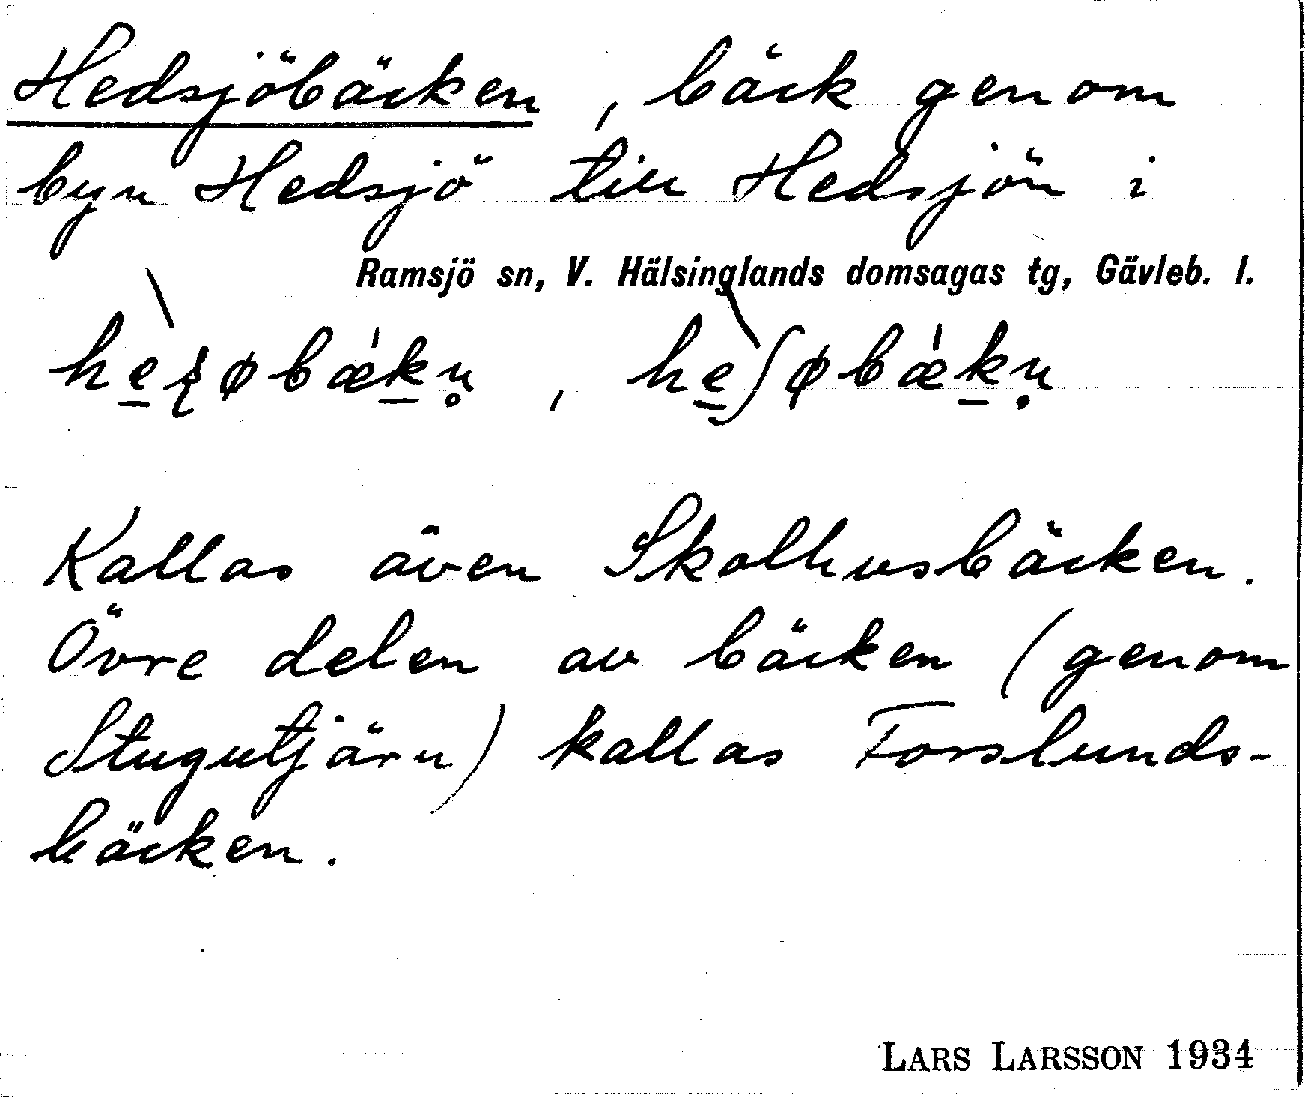 Hedsjöbäcken, bäck genom
byn Hedsjö till Hedsjön i
Ramsjö sn, V. Hälsinglands domsagas tg, Gävleb. l.
Kallas även Skolhusbäcken.
Övre delen av bäcken (genom
Stugutjärn) kallas Forslunds-
bäcken.
LARS LARSSON 1934